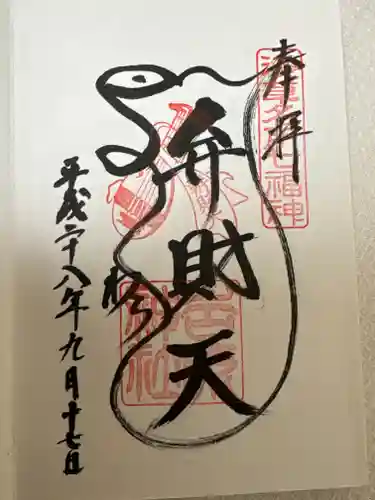 奉拝
七福神
弁財天
平成二十八年九月十七日